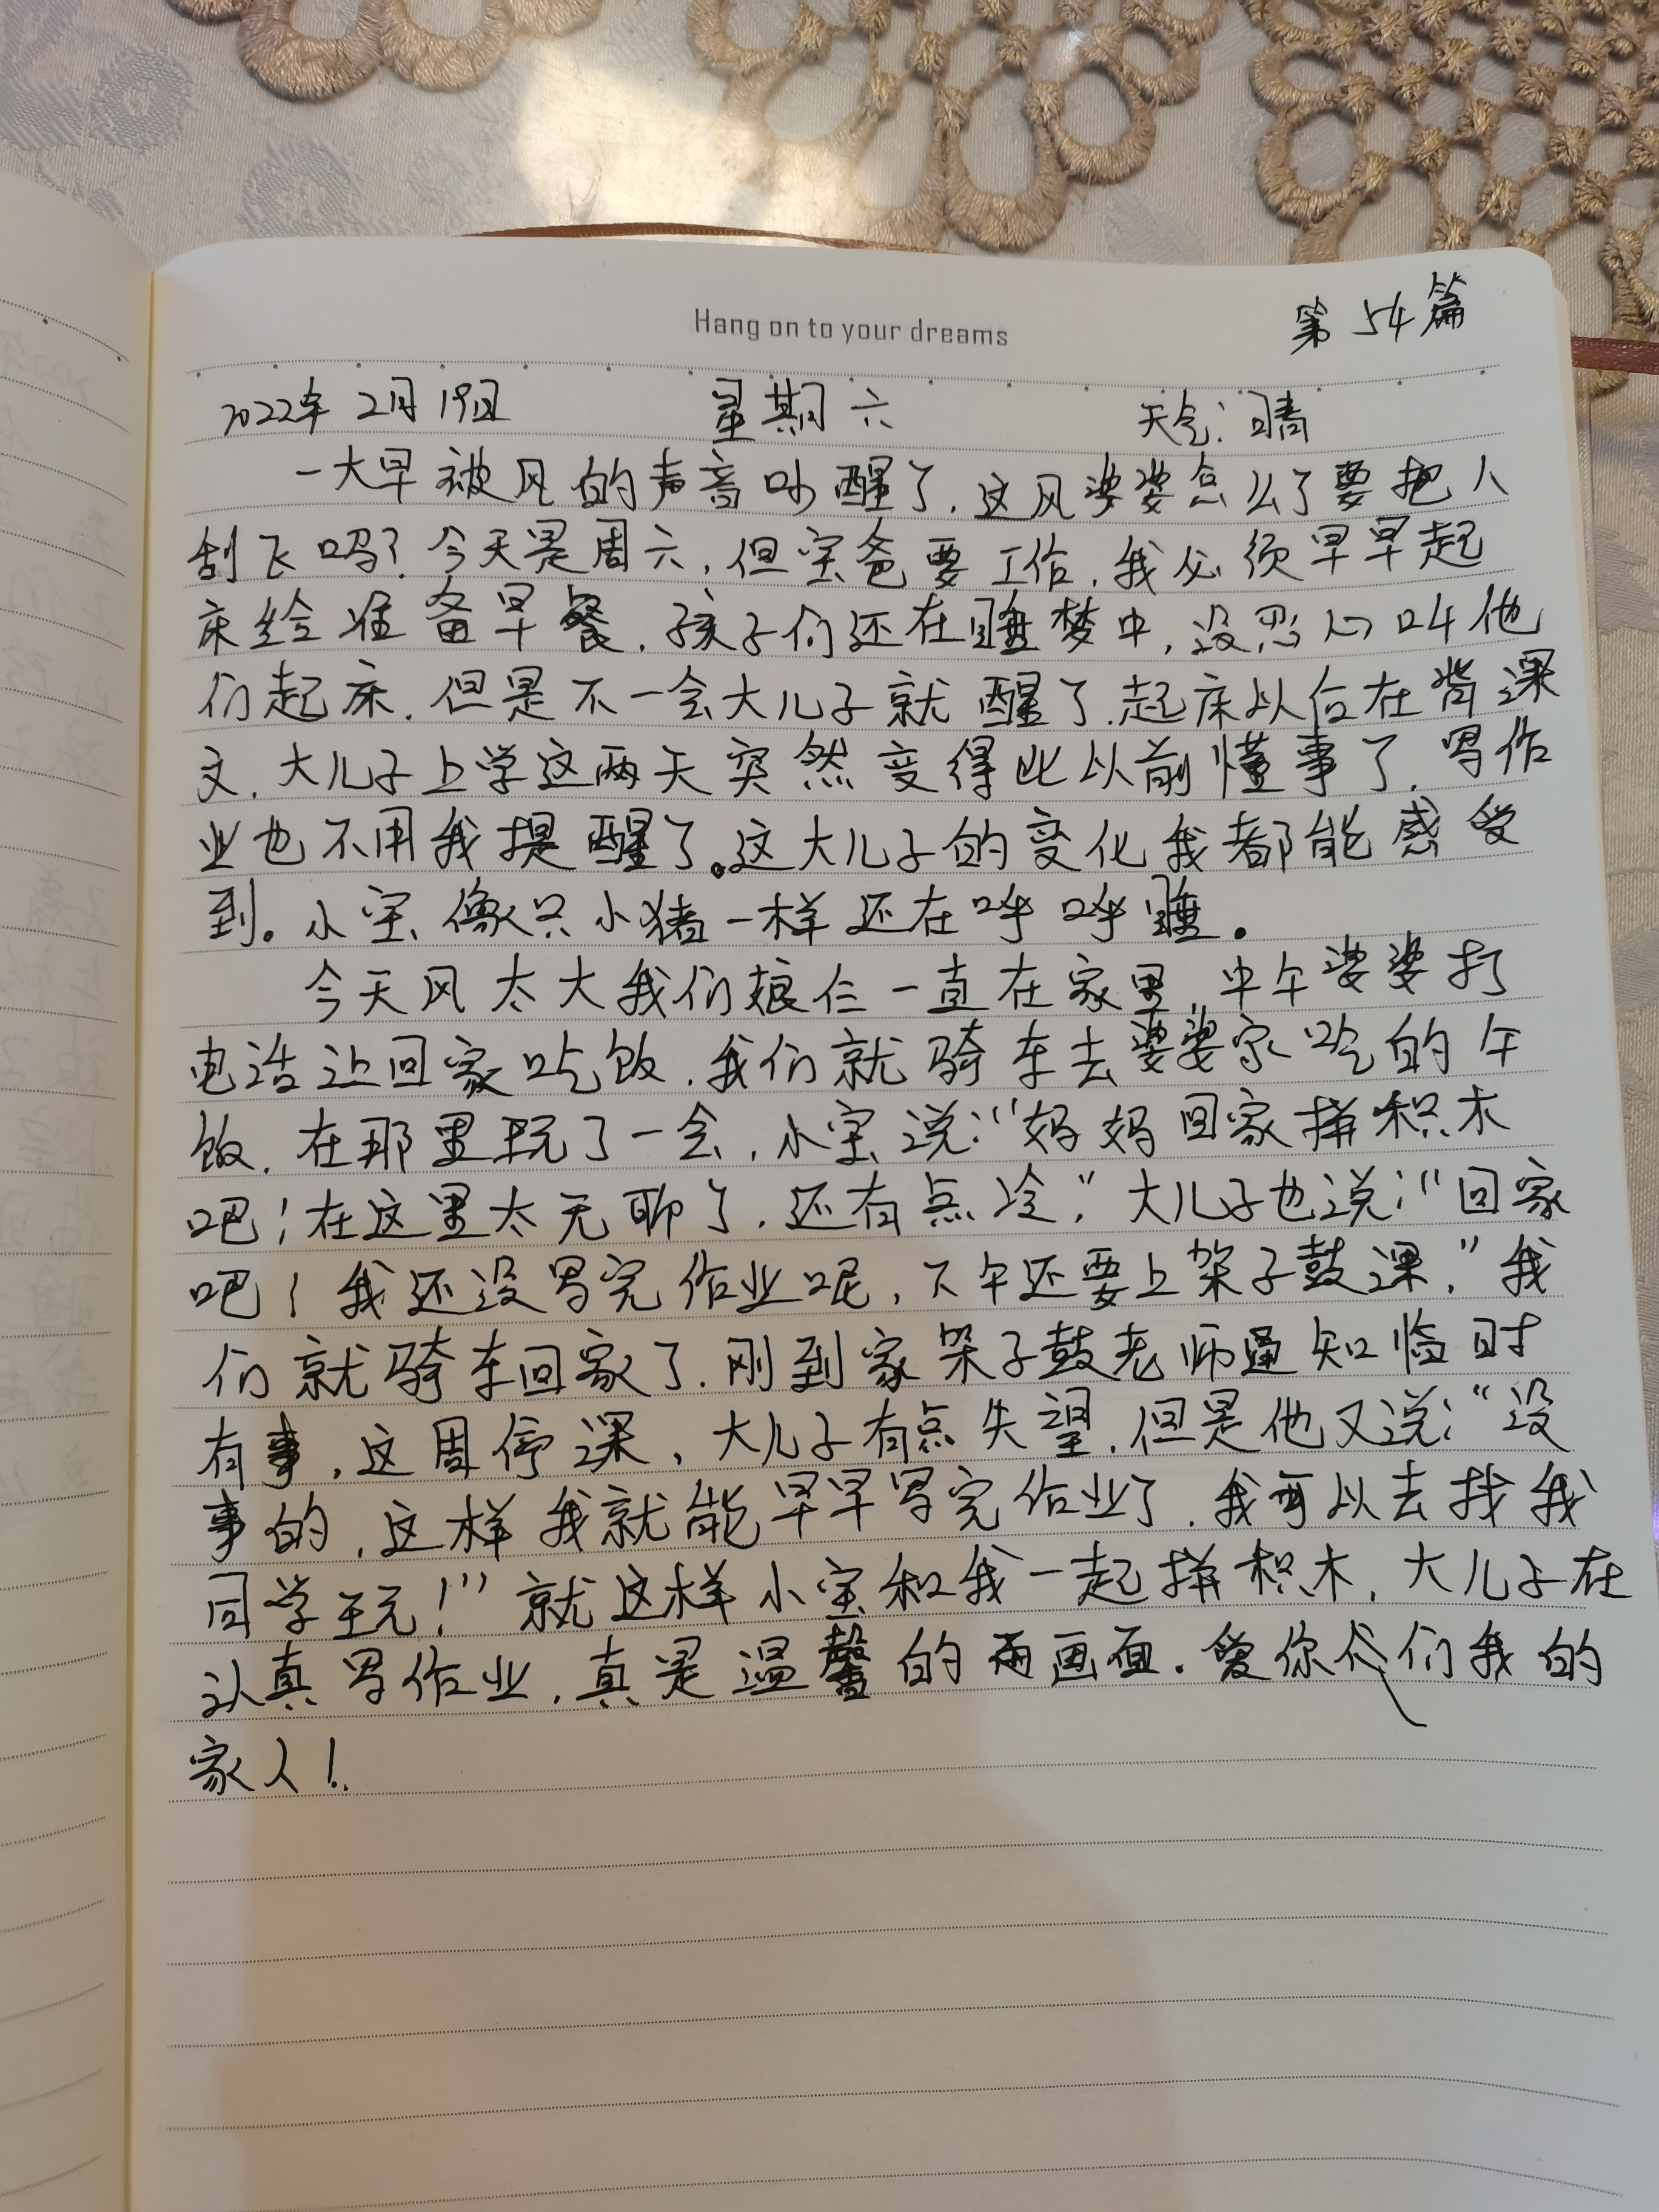 Hang on to your dreams
第54篇
2022年2月19日 星期六 天气:晴
一大早被风的声音吵醒了.这风婆婆怎么了要把人
刮飞吗?今天是周六,但宝爸要工作,我必须早早起
床给准备早餐.孩子们还在睡梦中,没忍心叫他
们起床.但是不一会大儿子就醒了.起床以后在背课
文.大儿子上学这两天突然变得比以前懂事了.写作
业也不用我提醒了。这大儿子的变化我都能感受
到。小宝像只小猪一样还在呼呼睡。
今天风太大我们娘仨一直在家里,中午婆婆打
电话让回家吃饭.我们就骑车去婆婆家吃的午
饭.在那里玩了一会,小宝说:“妈妈回家拼积木
吧!在这里太无聊了.还有点冷,”大儿子也说:“回家
吧!我还没写完作业呢,下午还要上架子鼓课.”我
们就骑车回家了.刚到家架子鼓老师通知临时
有事,这周停课,大儿子有点失望.但是他又说:“没
事的,这样我就能早早写完作业了.我可以去找我
同学玩!”就这样小宝和我一起拼积木,大儿子在
认真写作业,真是温馨的画面.爱你们我的
家人!